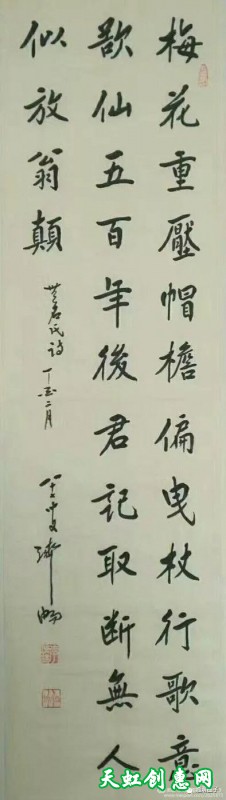 梅花重壓帽檐偏曳杖行歌意
欲仙五百年後君記取斷無人
似放翁顛
丁酉二月
天虹创惠网